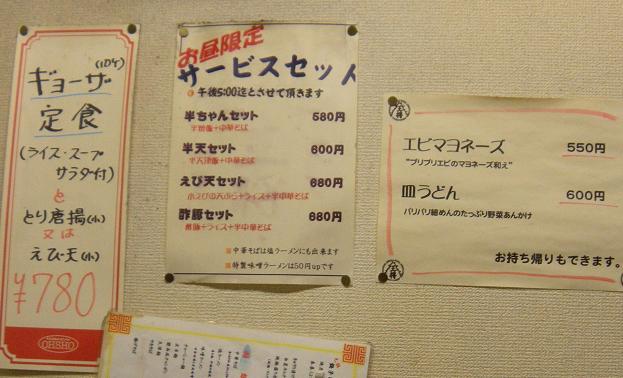 (10ケ)
ギョーザ
定食
(ライス・スープ
サラダ付)
と
とり唐揚(小)
又は
えび天(小)
¥780
OHSHO
お昼限定
サービスセット
午後5:00迄とさせて頂きます
半ちゃんセット 580円
半炒飯+中華そば
半天セット 600円
半天津飯+中華そば
えび天セット 680円
小えびの天ぷら+ライス+半中華そば
酢豚セット 680円
酢豚+ライス+半中華そば
■中華そばは塩ラーメンにも出来ます
■特製味噌ラーメンは50円upです
エビマヨネーズ 550円
"プリプリエビのマヨネーズ和え"
皿うどん 600円
パリパリ細めんのたっぷり野菜あんかけ
お持ち帰りもできます。